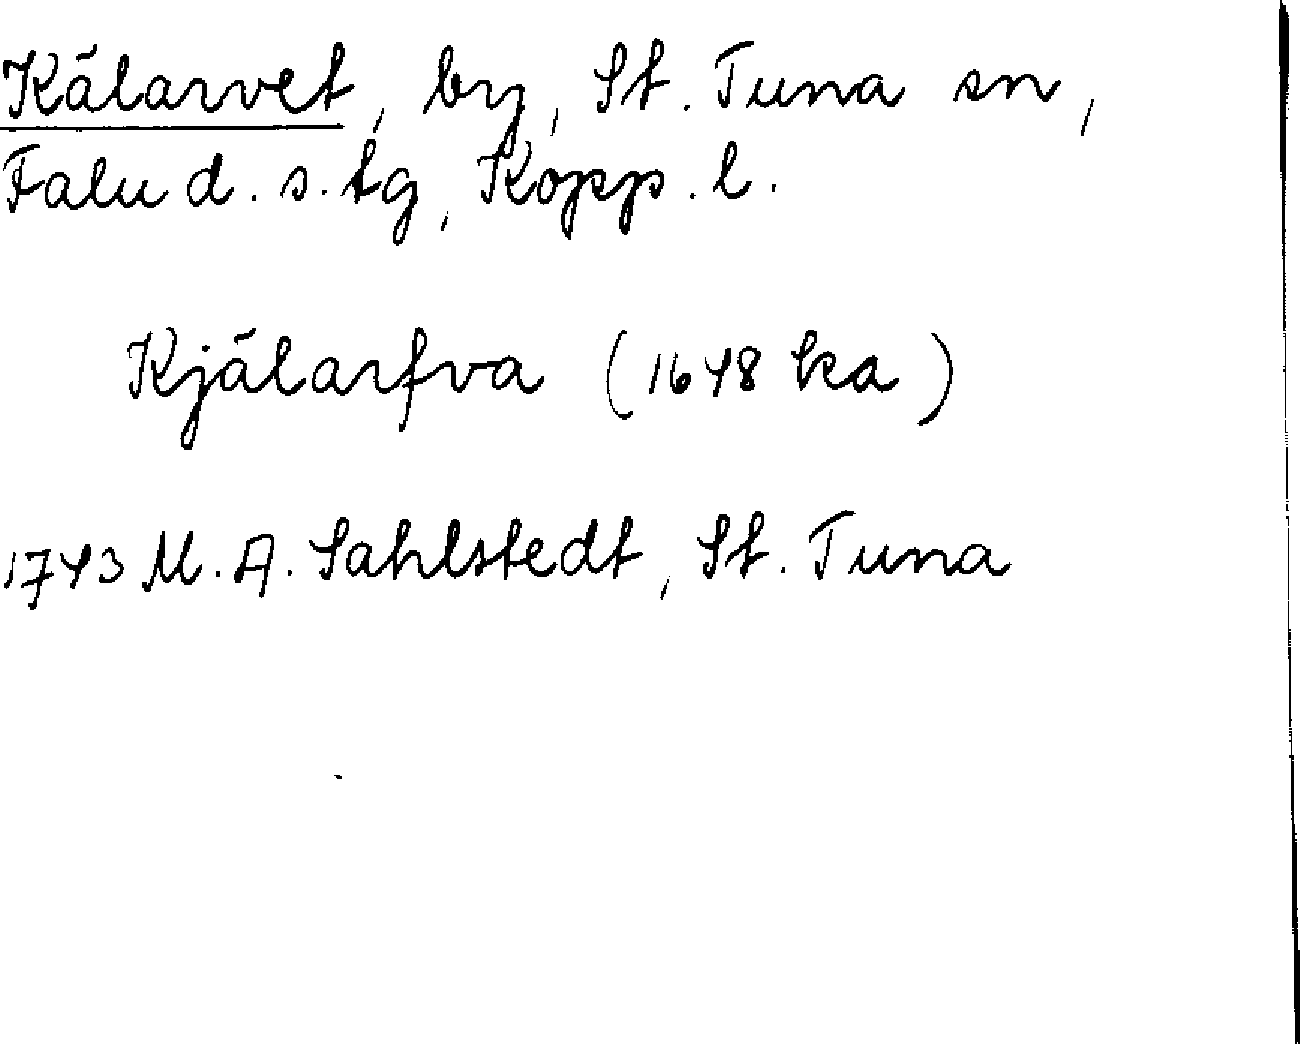 Kälarvet, by, St. Tuna sn,
Falu d. s. tg, Kopp. l.
Kjälarfva (1648 ka)
1743 M. A. Sahlstedt, St. Tuna